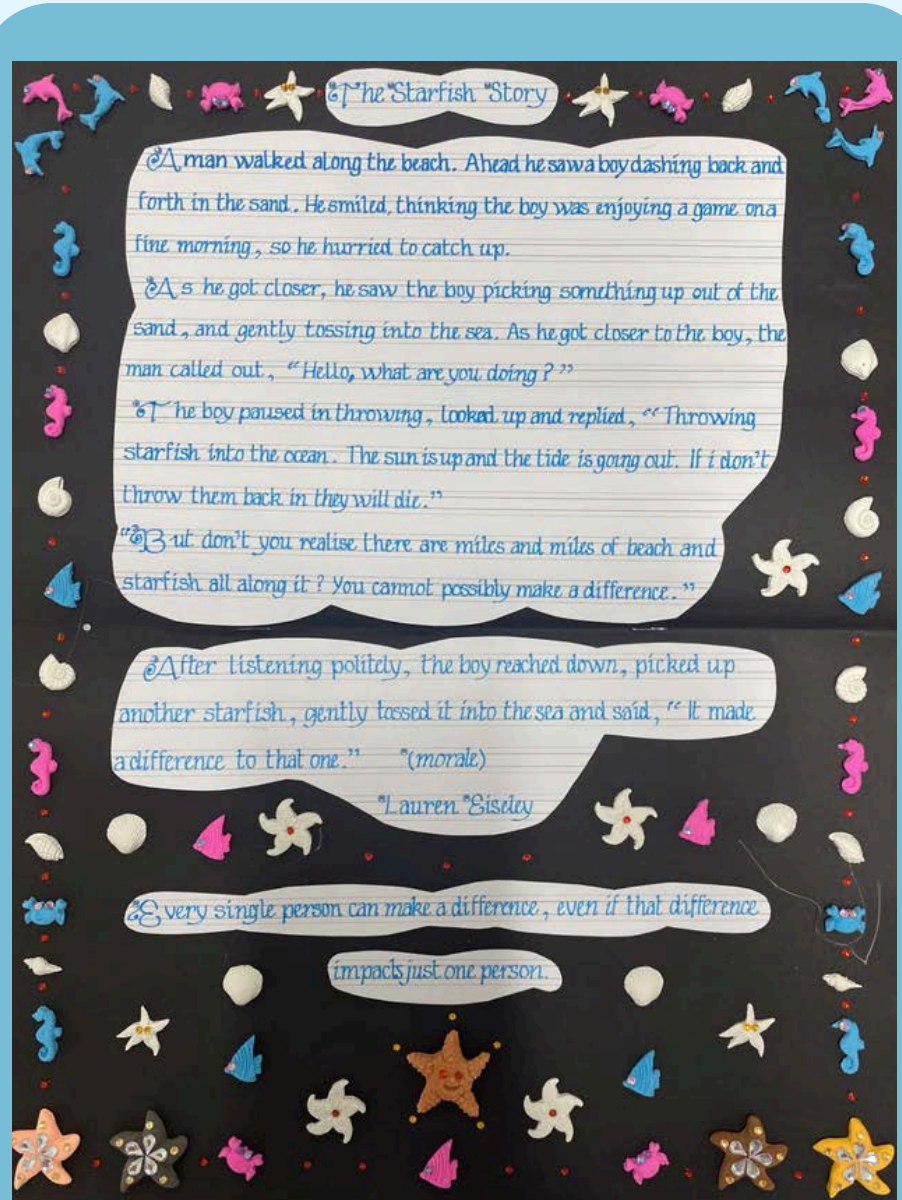 The Starfish Story
A man walked along the beach. Ahead he saw a boy dashing back and
forth in the sand. He smiled, thinking the boy was enjoying a game on a
fine morning, so he hurried to catch up.
As he got closer, he saw the boy picking something up out of the
sand, and gently tossing into the sea. As he got closer to the boy, the
man called out, “Hello, what are you doing?”
The boy paused in throwing, looked up and replied, “Throwing
starfish into the ocean. The sun is up and the tide is going out. If i don't
throw them back in they will die.”
“But don't you realise there are miles and miles of beach and
starfish all along it? You cannot possibly make a difference.”
After listening politely, the boy reached down, picked up
another starfish, gently tossed it into the sea and said, “It made
a difference to that one.” (morale)
Lauren Eiseley
Every single person can make a difference, even if that difference
impacts just one person.